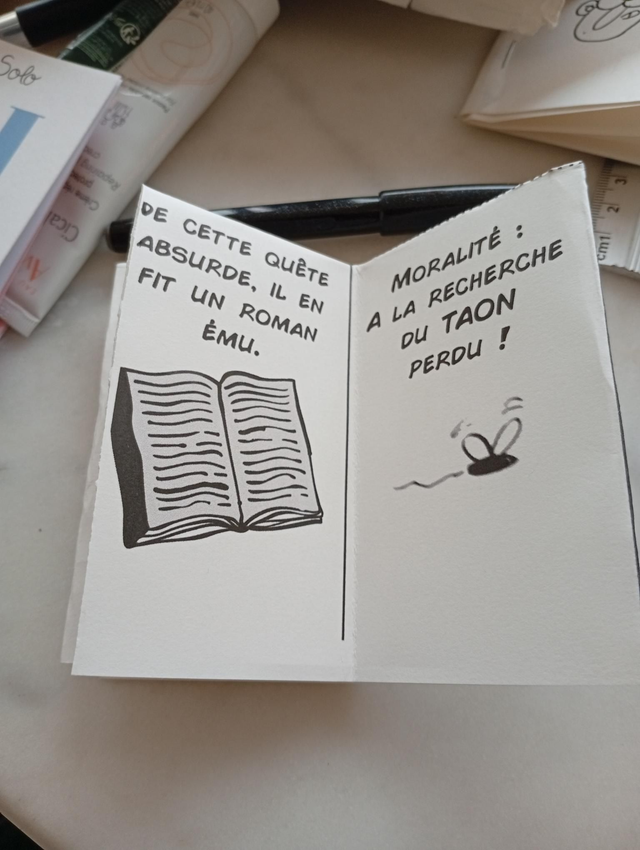 DE CETTE QUÊTE
ABSURDE, IL EN
FIT UN ROMAN
ÉMU.
MORALITÉ :
A LA RECHERCHE
DU TAON
PERDU !
Solo
cm1
2
3